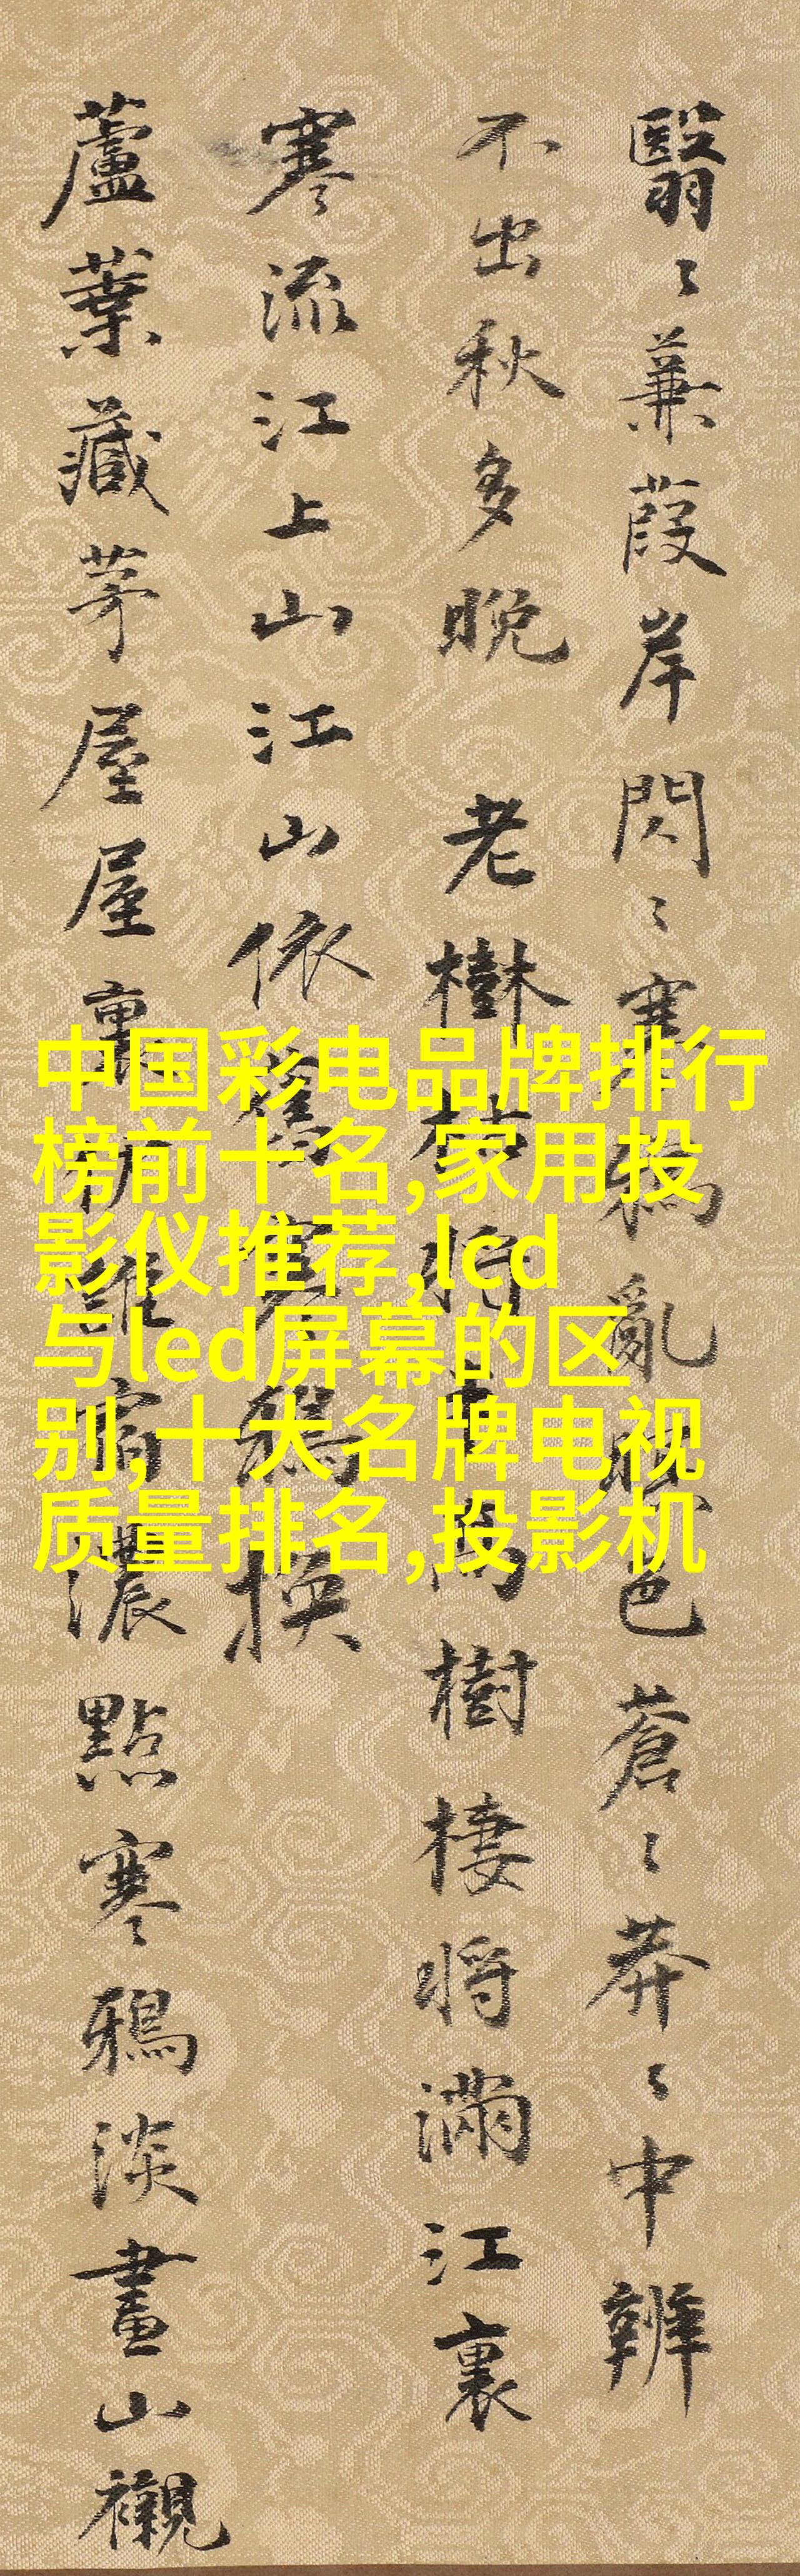 翳〻蒹葭岸閃〻寒鴉亂暝色蒼〻莽〻中辨
不出秋多晚 老樹枯將盡兩樹棲將滿江裏
寒流江上山江山依舊寒鴉換
蘆葉藏茅屋屋裏有誰宿濃點寒鴉淡畫山襯
中国彩电品牌排行
榜前十名,家用投
影仪推荐,lcd
与led屏幕的区
别,十大名牌电视
质量排名,投影机